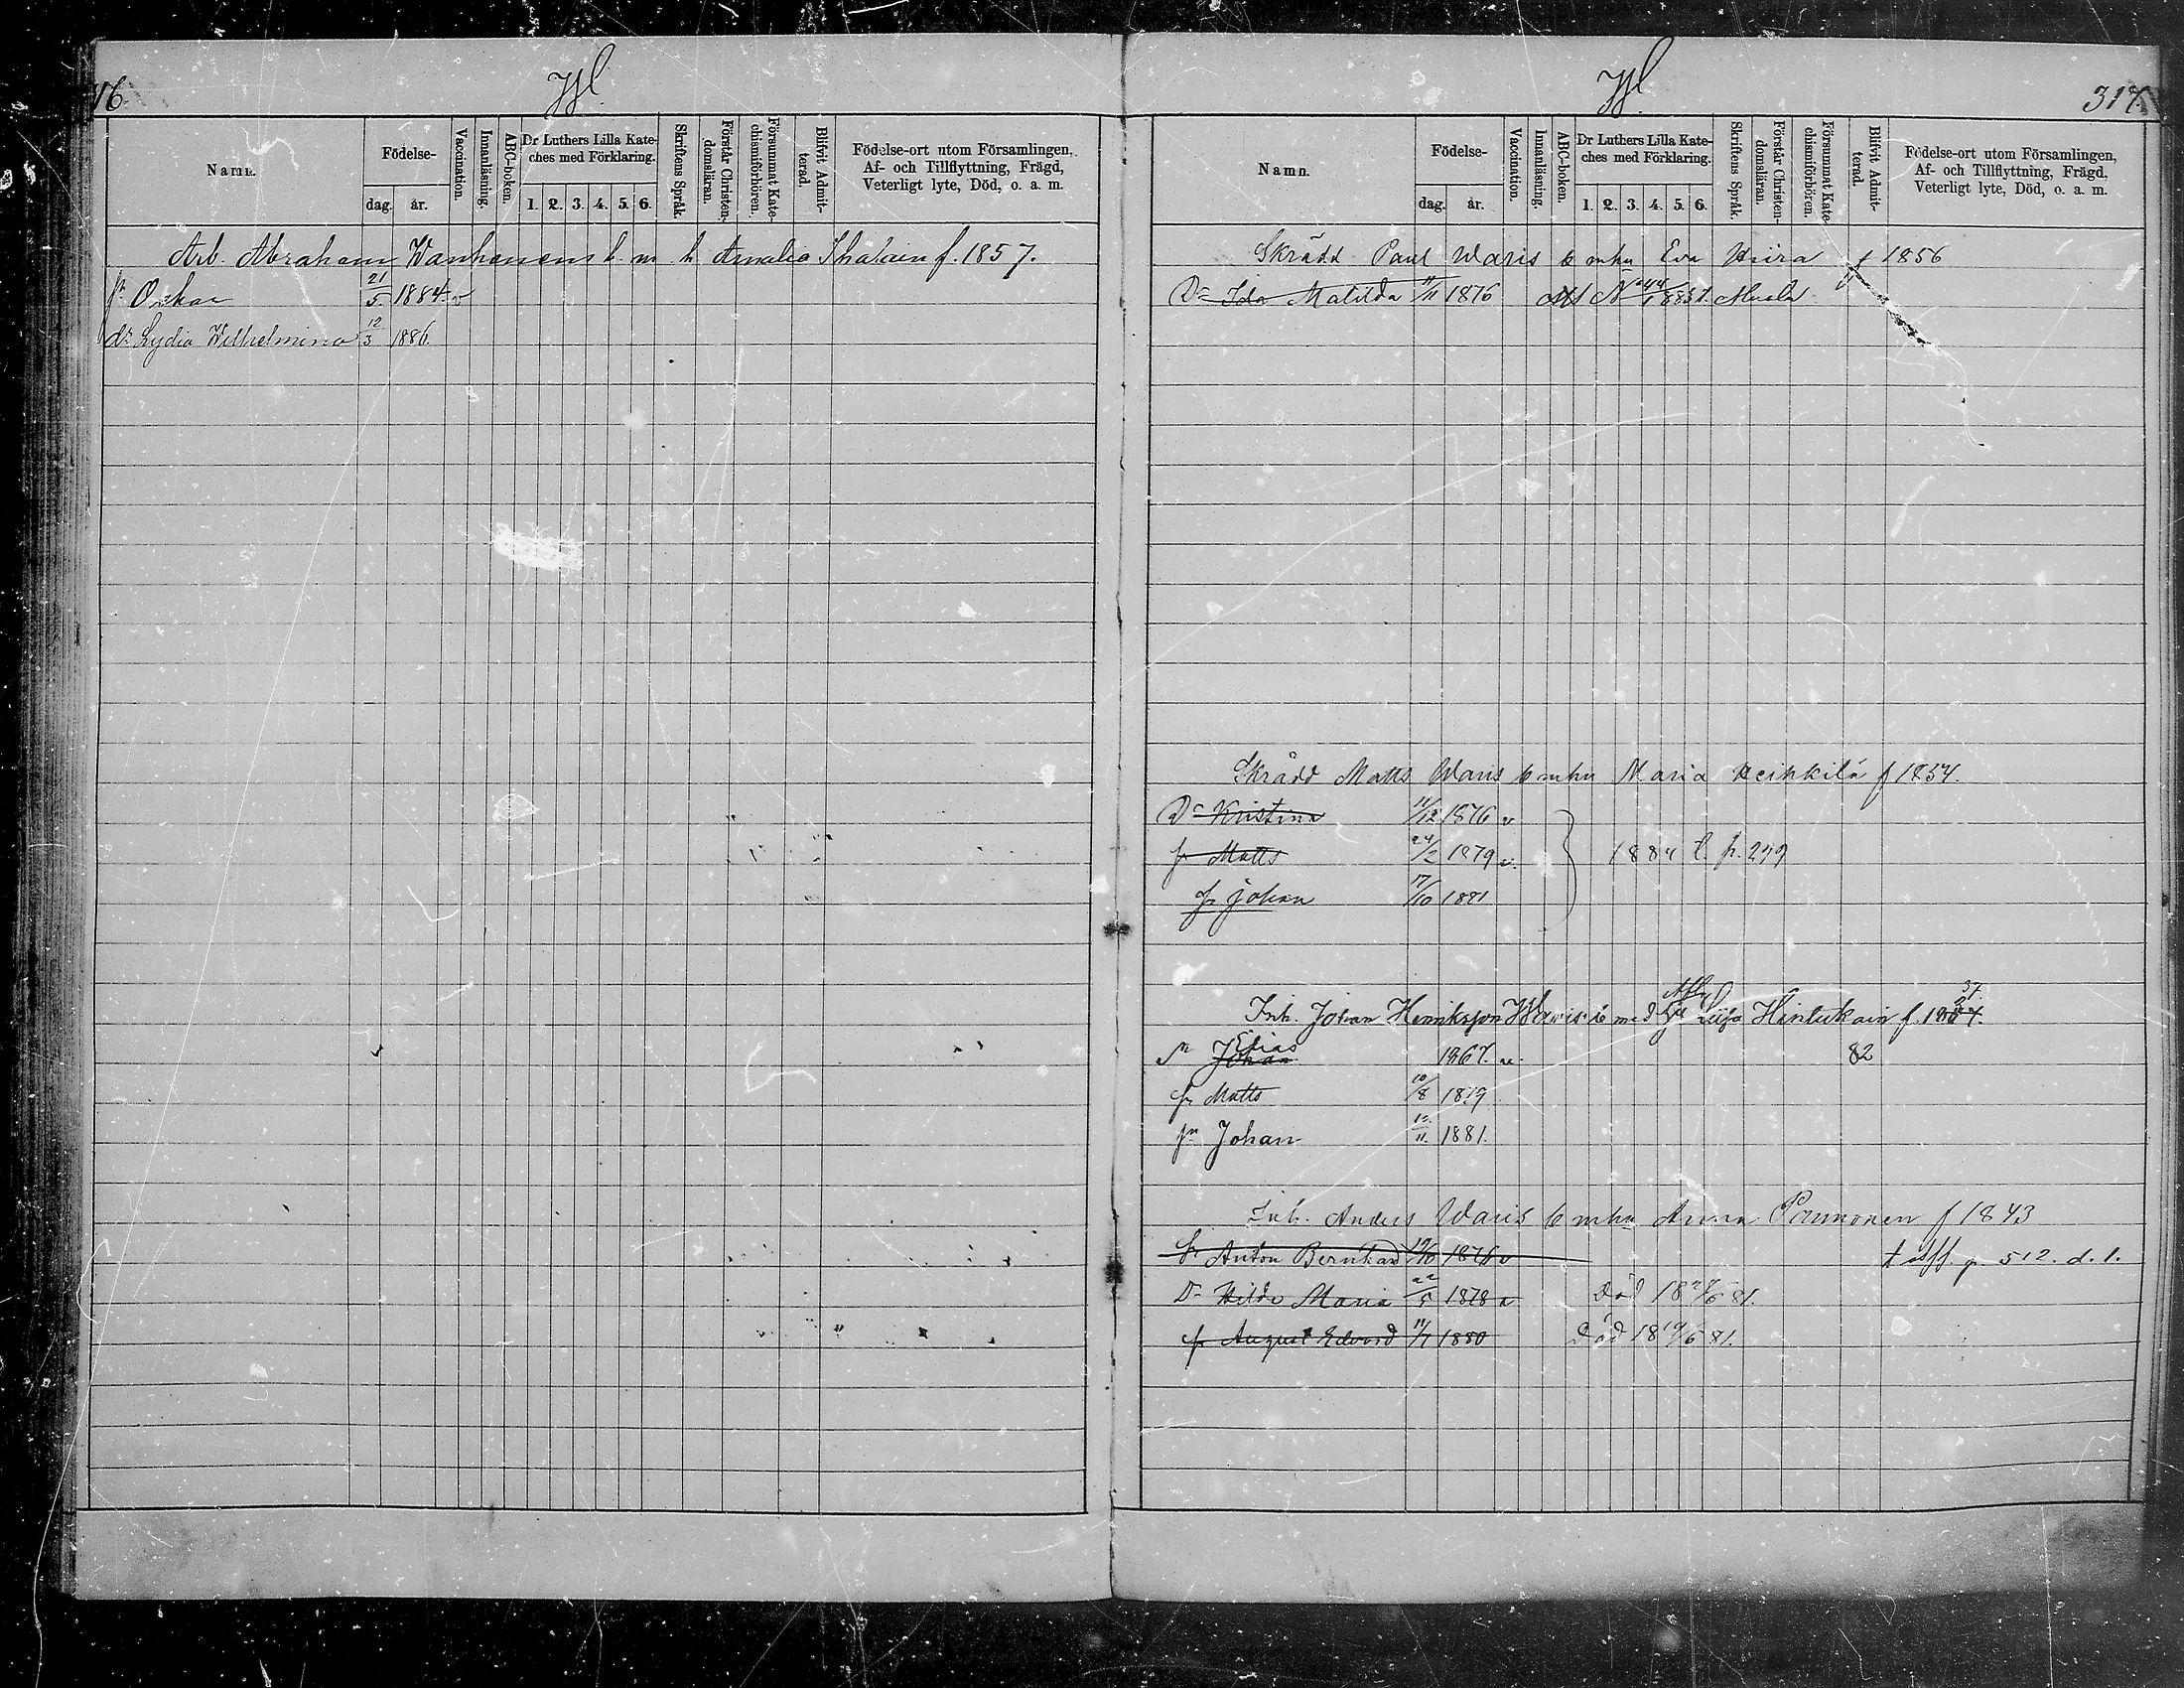 16.
Namn.
Födelse-
dag. år.
Vaccination.
Innanläsning.
ABC-boken.
Dr Luthers Lilla Kate-
ches med Förklaring.
1. 2. 3. 4. 5. 6.
Skriftens Språk.
Förstår Christen-
domsläran.
Försummat Kate-
chismiförhören.
Blifvit Admit-
terad.
Födelse-ort utom Församlingen,
Af- och Tillflyttning, Frägd,
Veterligt lyte, Död, o. a. m.
Arb. Abraham Wanhanens b. m. h. Amalia f. 1857.
sn Oskar 21/5 1884 v
dr Lydia Wilhelmina 12/3 1886.
317.
Namn.
Födelse-
dag. år.
Vaccination.
Innanläsning.
ABC-boken.
Dr Luthers Lilla Kate-
ches med Förklaring.
1. 2. 3. 4. 5. 6.
Skriftens Språk.
Förstår Christen-
domsläran.
Försummat Kate-
chismiförhören.
Blifvit Admit-
terad.
Födelse-ort utom Församlingen,
Af- och Tillflyttning, Frägd,
Veterligt lyte, Död, o. a. m.
Skrädd Paul Waris b mhu Eva f 1856
Dr Ida Matilda 11/11 1876
Skrädd Matts Waris b mhu Maria Heikkilä f 1854.
Dr Kristina 11/12 1876 v
sn Matts 24/2 1879 v. 1884 l. p. 299
sn Johan 17/10 1881
Inh. Johan Henriksson Waris b med Liisa f. 18
sn Johan Elias 1867. v. 82
sn Matts 10/8 1879
sn Johan 11. 1881.
Inh. Anders Waris b mhu Anna Paunonen f 1843
sn Anton Bernhard 19/10 1876 v p 512. d. l.
Dr Hilda Maria 22/5 1878 v Död 18 /6 81.
sn August Edvard 11/7 1880 Död 18 19/6 81.